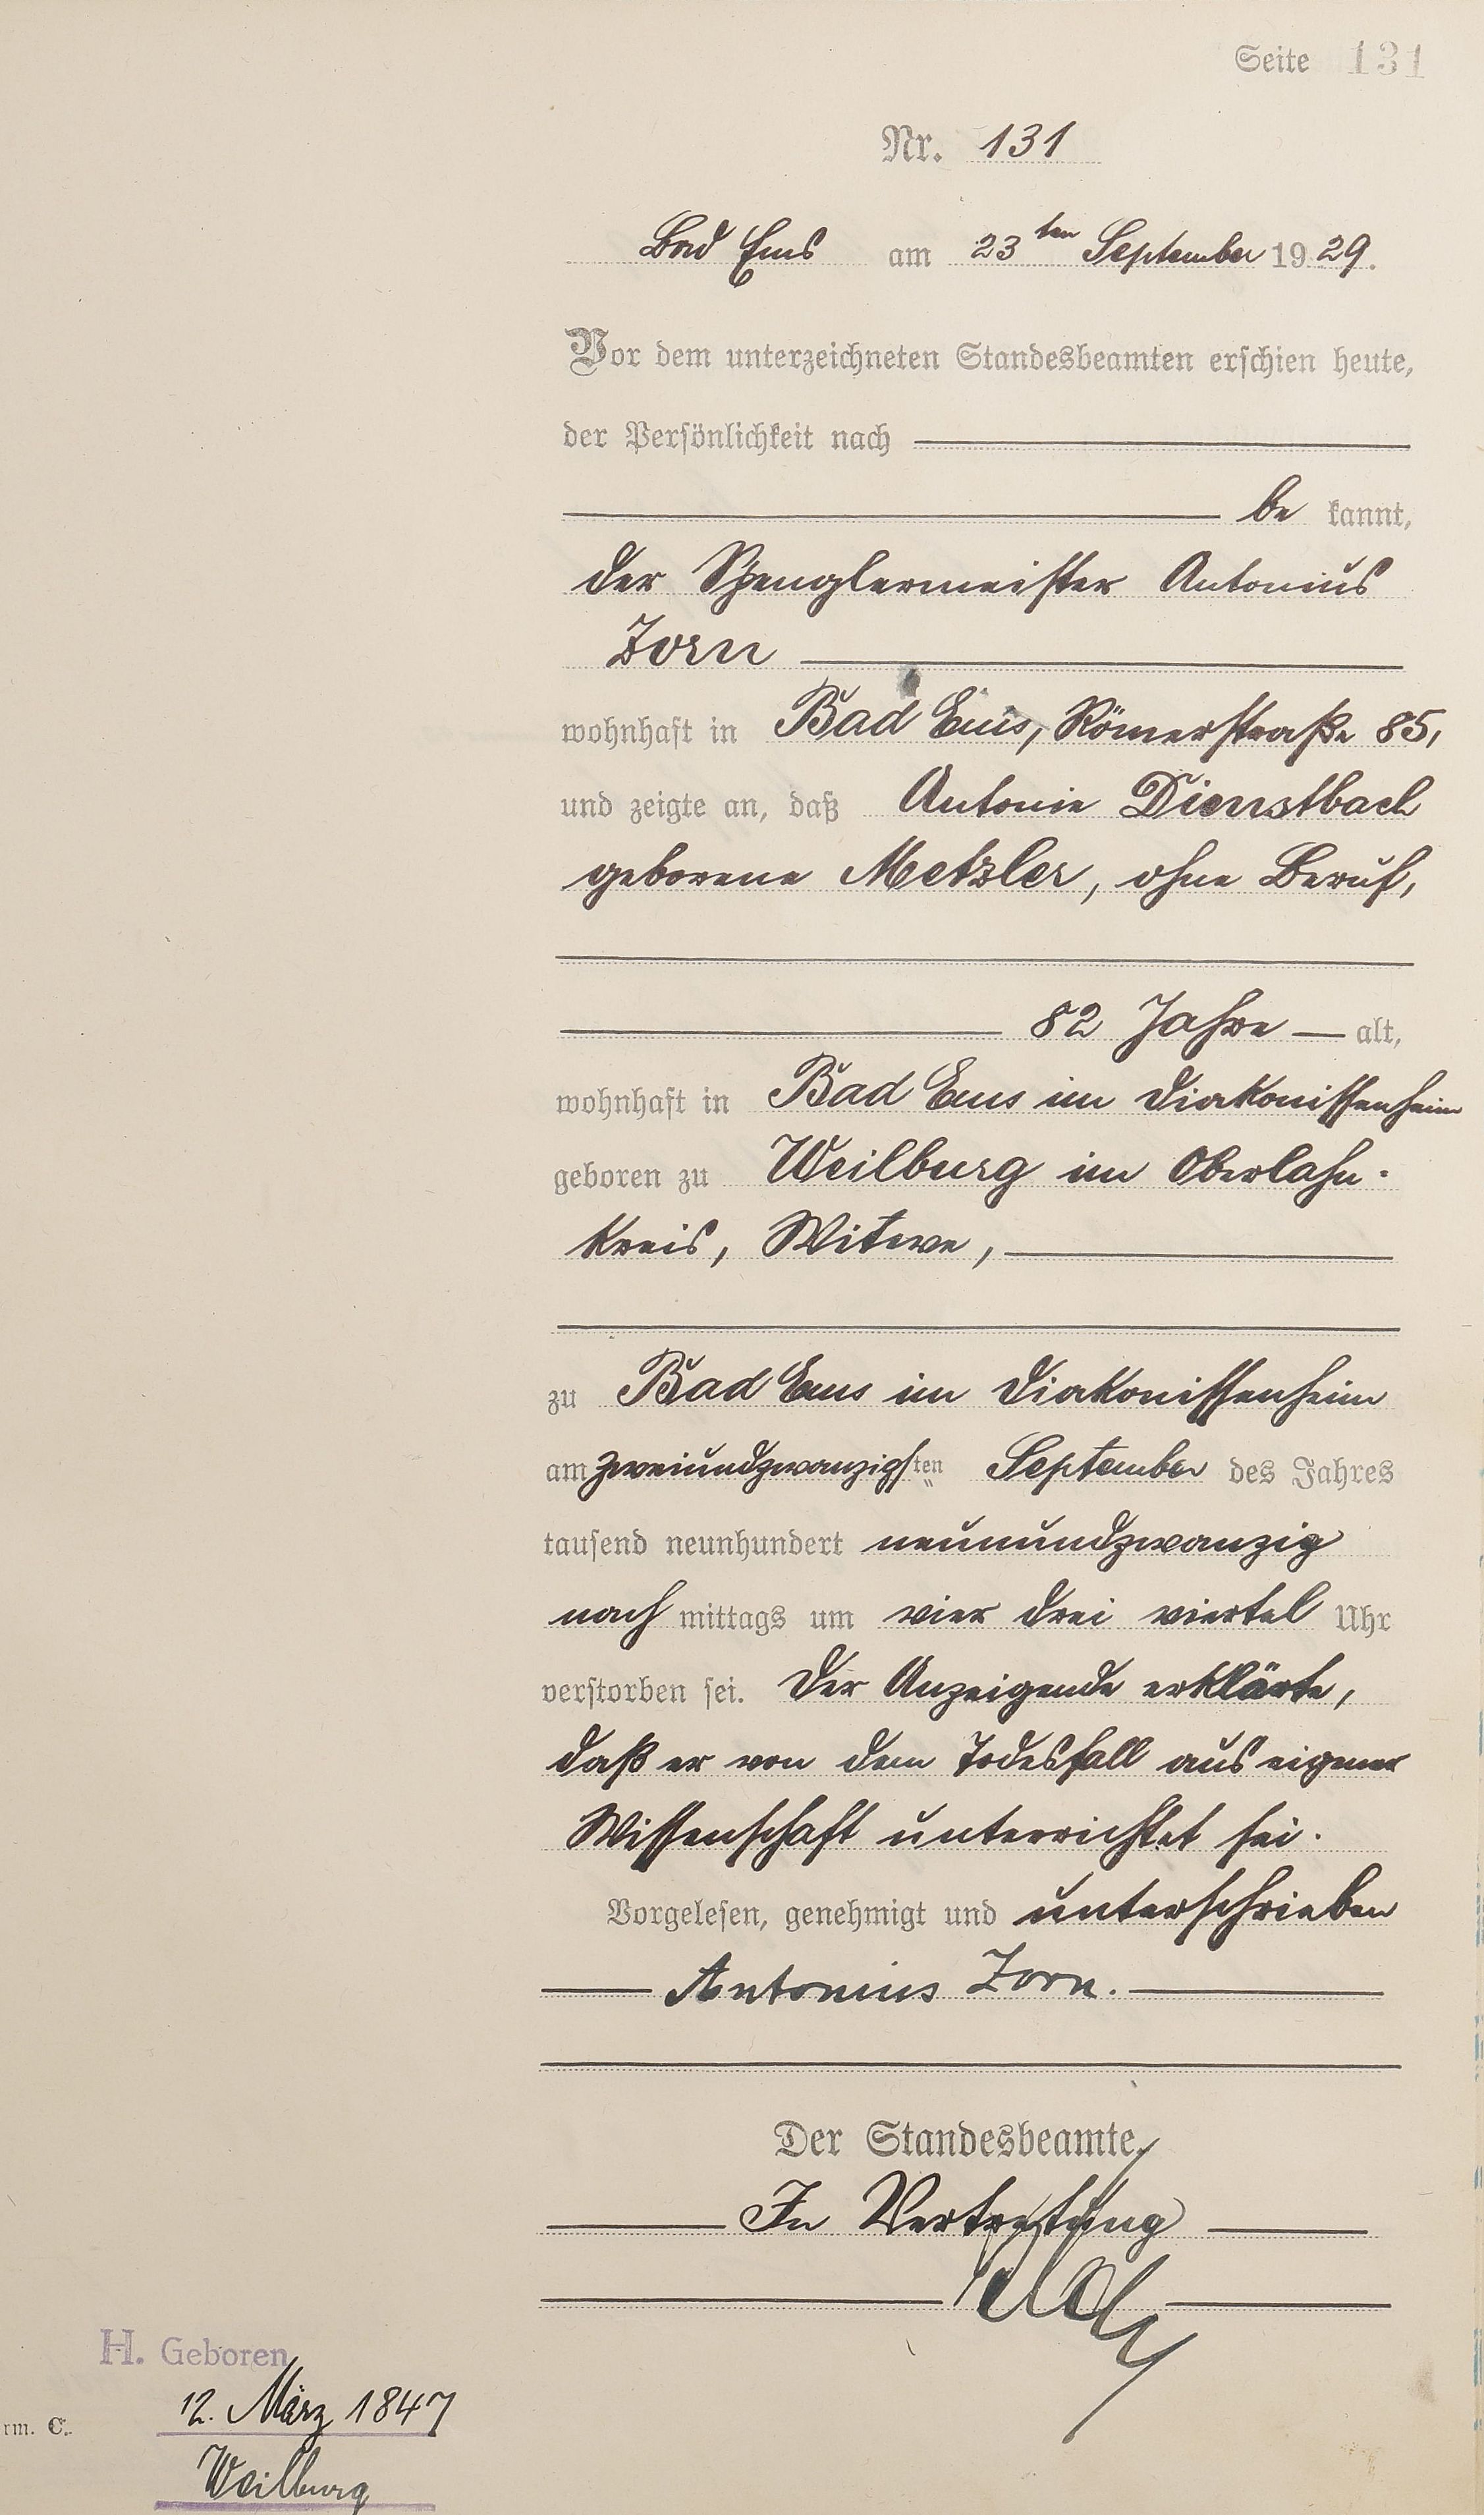 Seite 131
Nr. 131
Bad Ems am 23ten September 1929.
Vor dem unterzeichneten Standesbeamten erschien heute,
der Persönlichkeit nach
be kannt,
der Spenglermeister Antonius
Zorn
wohnhaft in Bad Ems, Römerstraße 85,
und zeigte an, daß Antonie Dienstbach
geborene Metzler, ohne Beruf,
82 Jahre alt,
wohnhaft in Bad Ems im Diakonissenheim
geboren zu Weilburg im Oberlahn-
kreis, Witwe,
zu Bad Ems im Diakonissenheim
am zweiundzwanzigsten September des Jahres
tausend neunhundert neunundzwanzig
nach mittags um vier drei viertel Uhr
verstorben sei. Der Anzeigende erklärte,
daß er von dem Todesfall aus eigener
Wissenschaft unterrichtet sei.
Vorgelesen, genehmigt und unterschrieben
Antonius Zorn.
Der Standesbeamte.
In Vertretung
H. Geboren
12. März 1847
rm. C.
Weilburg